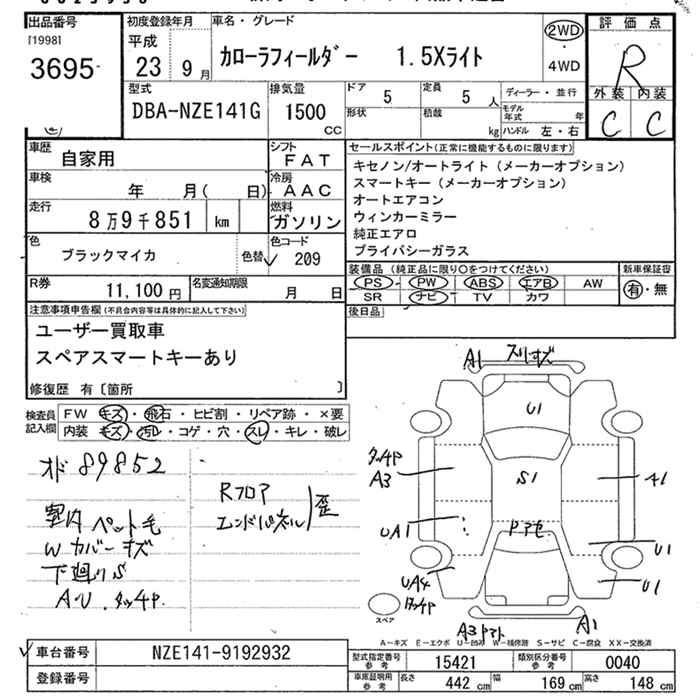 出品番号 初度登録年月 車名・グレード 評価点
[1998] 平成 2WD
3695 23 9月 カローラフィールダー 1.5Xライト 4WD R
型式 排気量 ドア 定員 ディーラー・並行 外装 内装
DBA-NZE141G 1500 CC 5 5人 C C
形状 積載 kg モデル年式 年
ハンドル 左・右
車歴 自家用 シフト FAT セールスポイント(正常に機能するものに限ります)
車検 年 月( 日) 冷房 AAC キセノン/オートライト(メーカーオプション)
走行 8万9千851 km 燃料 ガソリン スマートキー(メーカーオプション)
オートエアコン
ウィンカーミラー
純正エアロ
プライバシーガラス
色 ブラックマイカ 色替 色コード 209
装備品(純正品に限り○をつけてください) 新車保証書
R券 11,100円 名変通知期限 月 日 PS PW ABS エアB AW 有・無
SR ナビ TV カワ
注意事項申告欄(不具合内容等は具体的に記入して下さい) 後日品
ユーザー買取車
スペアスマートキーあり
修復歴 有〔箇所 〕
検査員記入欄 FW キズ・飛石・ヒビ割・リペア跡・×要
内装 キズ・汚レ・コゲ・穴・スレ・キレ・破レ
オド 89852
室内 ペット毛
W カバーキズ
下廻りS
A・U タッチP
Rフロア
エンドパネル
歪
A1 スリキズ
U1
タッチP
A3
S1
A1
UA1
ドア色
U1
UA4
タッチP
U1
スペア
A3 A1
A-キズ E-エクボ U-凹み W-補修跡 S-サビ C-腐食 XX-交換済
車台番号 NZE141-9192932 型式指定番号 参考 15421 類別区分番号 参考 0040
登録番号 車庫証明用 参考 長さ 442 cm 幅 169 cm 高さ 148 cm